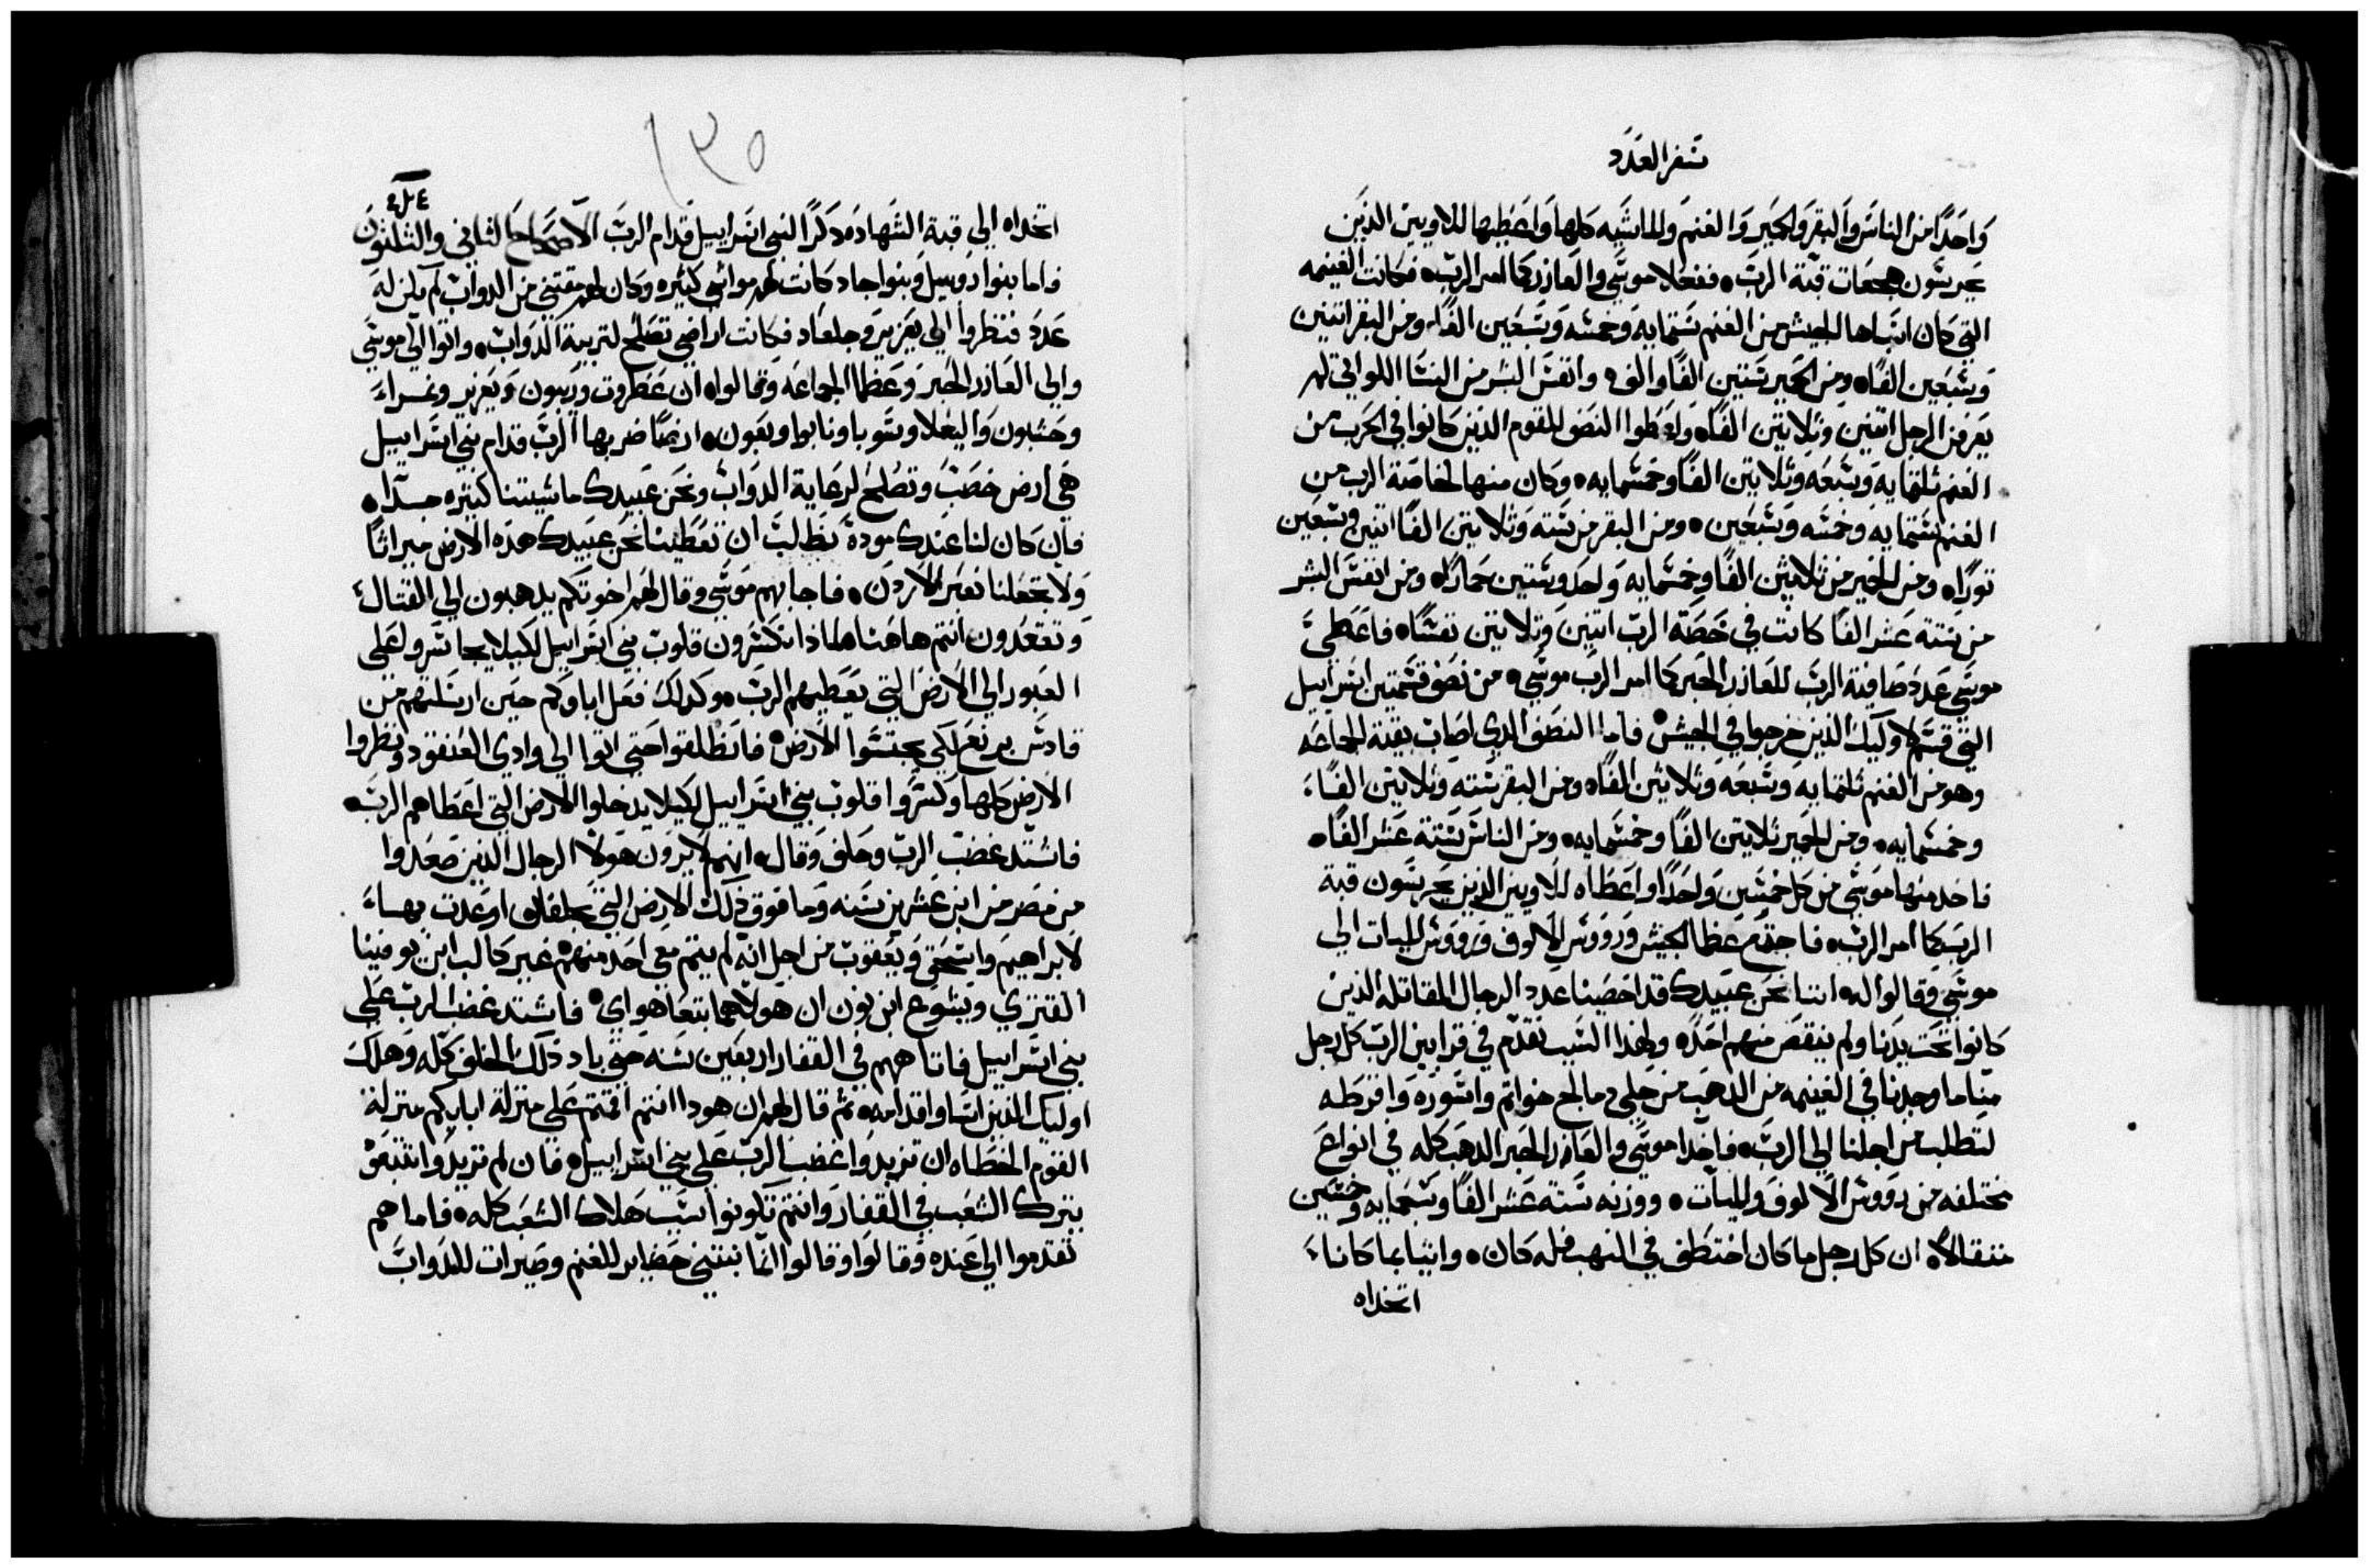 سفر العدد
واحدًا من الناس والبقر والحمير والغنم والماشيه كلها واعطيها للاويين الذين
يحرسون هجعات قبة الرب ففعلا موسى والعازر كما امر الرب فكانت الغنيمه
التي كان انتباها الجيش من الغنم ستمايه وخمسه وسبعين الفًا ومن البقر اتنين
وسبعين الفًا ومن الحمير ستين الفًا والف وانفس البشر من النسا اللواتي لم
يعرفن الرجل اتنين وتلاتين الفًا واعطوا النصف للقوم الذين كانوا في الحرب من
الغنم ثلثمايه وسبعه وتلاتين الفًا وخمسمايه وكان منها لخاصة الرب من
الغنم ستمايه وخمسه وسبعين ومن البقر من سته وثلاتين الفًا اتنين وسبعين
تورًا ومن الحمير من ثلاثين الفًا وخمسمايه واحد وستين حمارًا ومن انفس البشر
من ستة عشر الفًا كانت في خصة الرب اتنين وتلاتين نفسًا فاعطى
موسى عدد صافية الرب للعازر الحبر كما امر الرب موسى من نصف قسمتين اسراييل
التي قسم لاوليك الذين خرجوا في الجيش فاما النصف الذي اصاب بقية الجماعه
وهو من الغنم ثلثمايه وسبعه وثلاثين الفًا ومن البقر سته وثلاتين الفًا
وخمسمايه ومن الحمير ثلاتين الفًا وخمسمايه ومن الناس ستة عشر الفًا
فاخد منها موسى من كل خمسين واحدًا واعطاه للاويين الذين يحرسون قبة
الرب كما امر الرب فاجتمع عظما الجيش ورووس الالوف ورووس الميات الي
موسى وقالوا له اننا نحن عبيدك قد احصينا عدد الرجال المقاتله الذين
كانوا تحت يدنا ولم ينقص منهم احد ولهذا السبب نقدم في قرابين الرب كل رجل
منا ما وجدنا في الغنيمه من الدهب من حلي دمالج خواتم واسوره واقرطه
لتطلب من اجلنا الي الرب فاخدا موسى والعازر الحبر الدهب كله في انواع
مختلفه من رووس الالوف والميات ووزنه ستة عشر الفًا وسبعمايه وخمسين
متقالًا ان كل رجل ما كان اختطف في النهب فله كان واتيا بما كانا
اتخداه
١٣٥
اتخداه الي قبة الشهاده دكرًا لبني اسراييل قدام الرب الاصحاح الثاني والثلثون
واما بنوا روبيل وبنوا جاد كانت لهم مواشي كثيره وكان لهم مقتنى من الدواب لم يكن له
عدد فنظروا الي يعزير وجلعاد فكانت اراضي تصلح لتربية الدواب واتوا الي موسى
والي العازر الحبر وعظما الجماعه وقالوا ان عطروت وديبون ويعزير ونمراء
وحشبون واليعلا وسوبا ونابوا وبعون ارضًا ضربها الرب قدام بني اسراييل
هي ارض خصب وتصلح لرعاية الدواب ونحن عبيدك ماشيتنا كتيره جدًا
فان كان لنا عندك مودة نطلب ان تعطينا نحن عبيدك هده الارض ميراثًا
ولا تجعلنا نعبر الاردن فاجابهم موسى وقال لهم اخوتكم يدهبون الي القتال
وتقعدون انتم هاهنا لماذا تكسرون قلوب بني اسراييل لكيلا يجاسروا على
العبور الي الارض التي يعطيهم الرب وكدلك فعل اباوكم حين ارسلتهم من
قادس برنع لكي يجتسوا الارض فانطلقوا حتى اتوا الي وادي العنقود ونظروا
الارض كلها وكسروا قلوب بني اسراييل لكيلا يدخلوا الارض التي اعطاهم الرب
فاشتد غضب الرب وحلف وقال انهم لا يرون هولا الرجال الذين صعدوا
من مصر من ابن عشرين سنه وما فوق ذلك الارض التي بحلفان اوعدت بها
لابراهيم واسحق ويعقوب من اجل انه لم يتم معي احد منهم غير كالب ابن يوفينا
القنزي ويشوع ابن نون ان هولا هما يتبعا هواي فاشتد غضب الرب على
بني اسراييل فاتاههم في القفار اربعين سنه حتى باد ذلك الخلف كله وهلك
اوليك الذين اساوا قدامه ثم قال لهم ان هودا انتم اقمتم على منزلة ابايكم منزلة
القوم الخطاه ان تزيدوا غضب الرب على بني اسراييل فان لم تريدوا تتبعون
يترك الشعب في القفار وانتم تكونوا سبب هلاك الشعب كله فاما هم
تقدموا الي عنده وقالوا وقالوا انما نبتني حضاير للغنم وصيرات للدواب